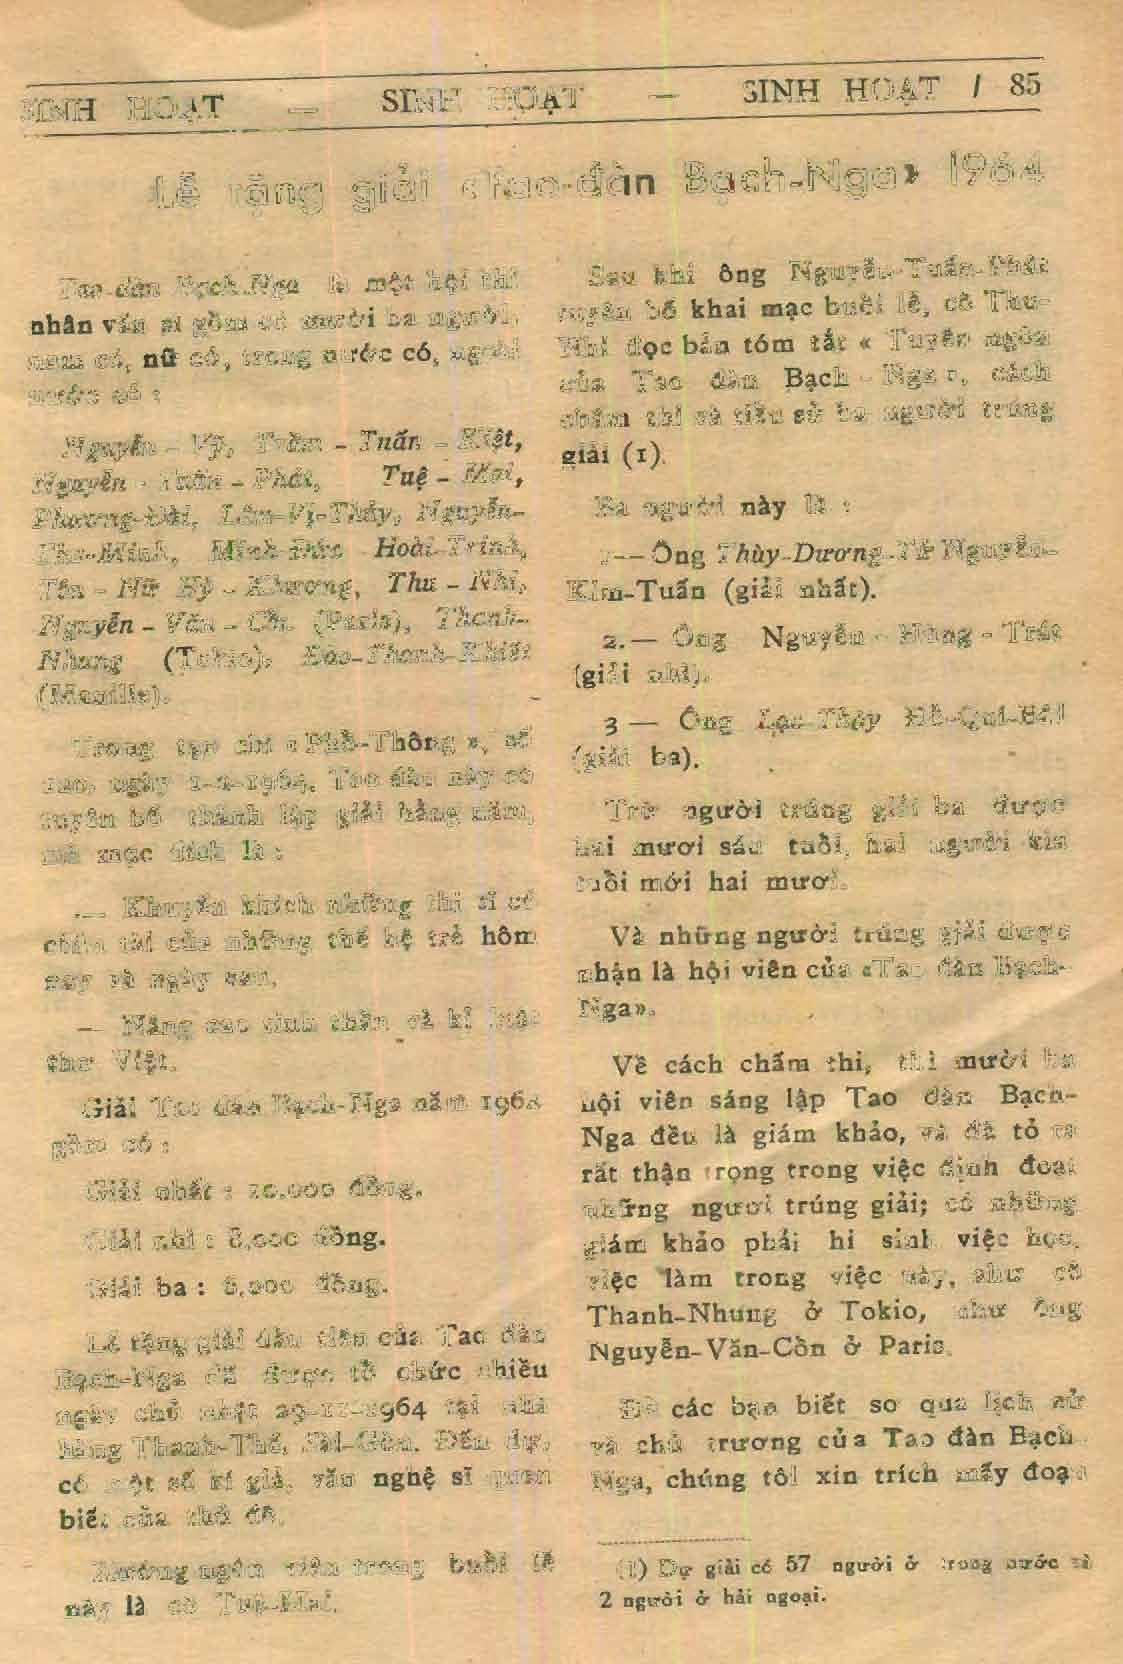 SINH HOẠT — SINH HOẠT — SINH HOẠT / 85
Lễ tặng giải «Tao-đàn Bạch-Nga» 1964
Tao-đàn Bạch-Nga là một hội thi
nhân văn sĩ gồm có mười ba người,
nam có, nữ có, trong nước có, ngoài
nước có :
Nguyễn - Vỹ, Trần - Tuấn - Kiệt,
Nguyễn - Tuấn - Phát, Tuệ - Mai,
Phương-Đài, Lâm-Vị-Thủy, Nguyễn-
Thu-Minh, Minh-Đức - Hoài-Trinh,
Tôn - Nữ Hỷ - Khương, Thu - Nhi,
Nguyễn - Văn - Cồn (Paris), Thanh-
Nhung (Tokio), Đào-Thanh-Khiết
(Manille).
Trong tạp chí « Phổ-Thông », số
ngày 1-2-1964, Tao đàn này có
tuyên bố thành lập giải hằng năm,
mà mục đích là :
— Khuyến khích những thi sĩ có
chân tài của những thế hệ trẻ hôm
nay và ngày sau.
— Nâng cao tinh thần và kỉ luật
thơ Việt.
Giải Tao đàn Bạch-Nga năm 1964
gồm có :
Giải nhất : 10.000 đồng.
Giải nhì : 8.000 đồng.
Giải ba : 6.000 đồng.
Lễ tặng giải đầu tiên của Tao đàn
Bạch-Nga đã được tổ chức chiều
ngày chủ nhật 29-11-1964 tại nhà
hàng Thanh-Thế, Sài-Gòn. Đến dự,
có một số kí giả, văn nghệ sĩ quen
biết của thủ đô.
Xướng ngôn viên trong buổi lễ
này là cô Tuệ-Mai.
Sau khi ông Nguyễn-Tuấn-Phát
tuyên bố khai mạc buổi lễ, cô Thu-
Nhi đọc bản tóm tắt « Tuyên ngôn
của Tao đàn Bạch - Nga », cách
chấm thi và tiểu sử ba người trúng
giải (1).
Ba người này là :
1-- Ông Thùy-Dương-Tử Nguyễn-
Kim-Tuấn (giải nhất).
2.— Ông Nguyễn - Hùng - Trát
(giải nhì).
3 — Ông Lạc-Thủy Hồ-Quí-Hải
(giải ba).
Trừ người trúng giải ba được
hai mươi sáu tuổi, hai người kia
tuổi mới hai mươi.
Và những người trúng giải được
nhận là hội viên của «Tao đàn Bạch-
Nga».
Về cách chấm thi, thì mười ba
hội viên sáng lập Tao đàn Bạch-
Nga đều là giám khảo, và đã tỏ ra
rất thận trọng trong việc định đoạt
những ngươi trúng giải; có những
giám khảo phải hi sinh việc học,
việc làm trong việc này, như cô
Thanh-Nhung ở Tokio, như ông
Nguyễn-Văn-Cồn ở Paris.
Để các bạn biết sơ qua lịch sử
và chủ trương của Tao đàn Bạch-
Nga, chúng tôi xin trích mấy đoạn
(1) Dự giải có 57 người ở trong nước và
2 người ở hải ngoại.